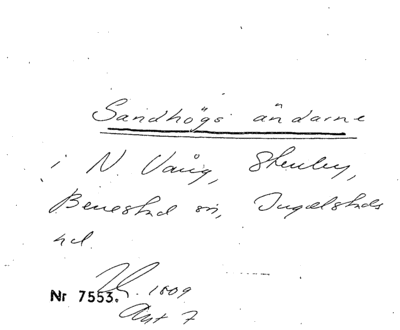 Sandhögs ändarne
i N. Vång, Stenby,
Benestad sn, Ingelstads
hd.
1809
Nr 7553.
Ant 7